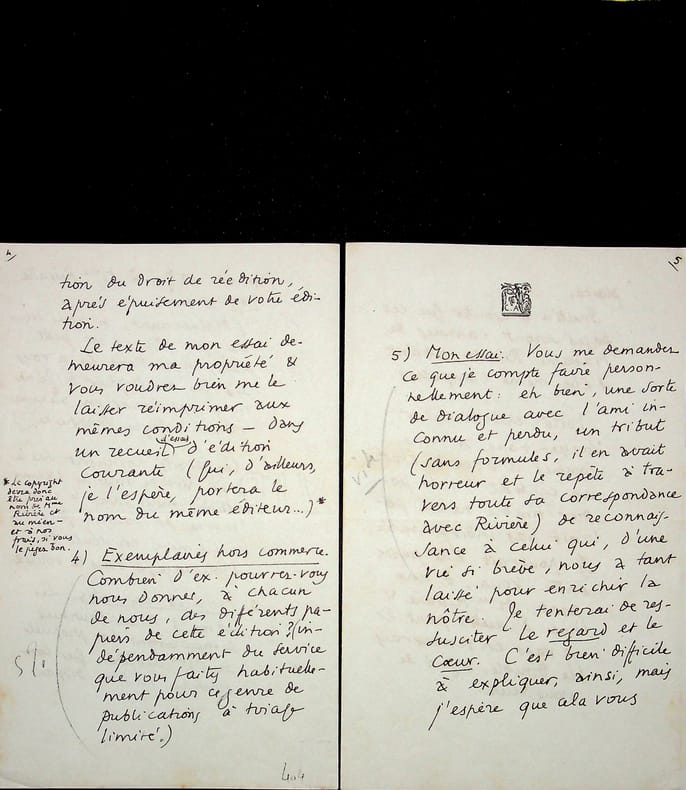 4/
tion du droit de réédition,
après épuisement de votre édi-
tion.
Le texte de mon essai de-
meurera ma propriété &
vous voudrez bien me le
laisser réimprimer aux
mêmes conditions — dans
un recueil (d'essais) d'édition
courante (qui, d'ailleurs,
je l'espère, portera le
nom du même éditeur...)*
* Le copyright
devra donc
être pris au
nom de Mme
Rivière et
au mien —
et à nos
frais, si vous
le jugez bon.
4) Exemplaires hors commerce.
Combien d'ex. pourrez-vous
nous donner, à chacun
de nous, des différents pa-
piers de cette édition? (in-
dépendamment du service
que vous faites habituelle-
ment pour ce genre de
publications à tirage
limité.)
5%
404
5
5) Mon essai. Vous me demandez
ce que je compte faire person-
nellement: eh bien, une sorte
de dialogue avec l'ami in-
connu et perdu, un tribut
(sans formules, il en avait
horreur et le répète à tra-
vers toute sa correspondance
avec Rivière) de reconnais-
sance à celui qui, d'une
vie si brève, nous a tant
laissé pour enrichir la
nôtre. Je tenterai de res-
susciter le regard et le
cœur. C'est bien difficile
à expliquer, ainsi, mais
j'espère que cela vous